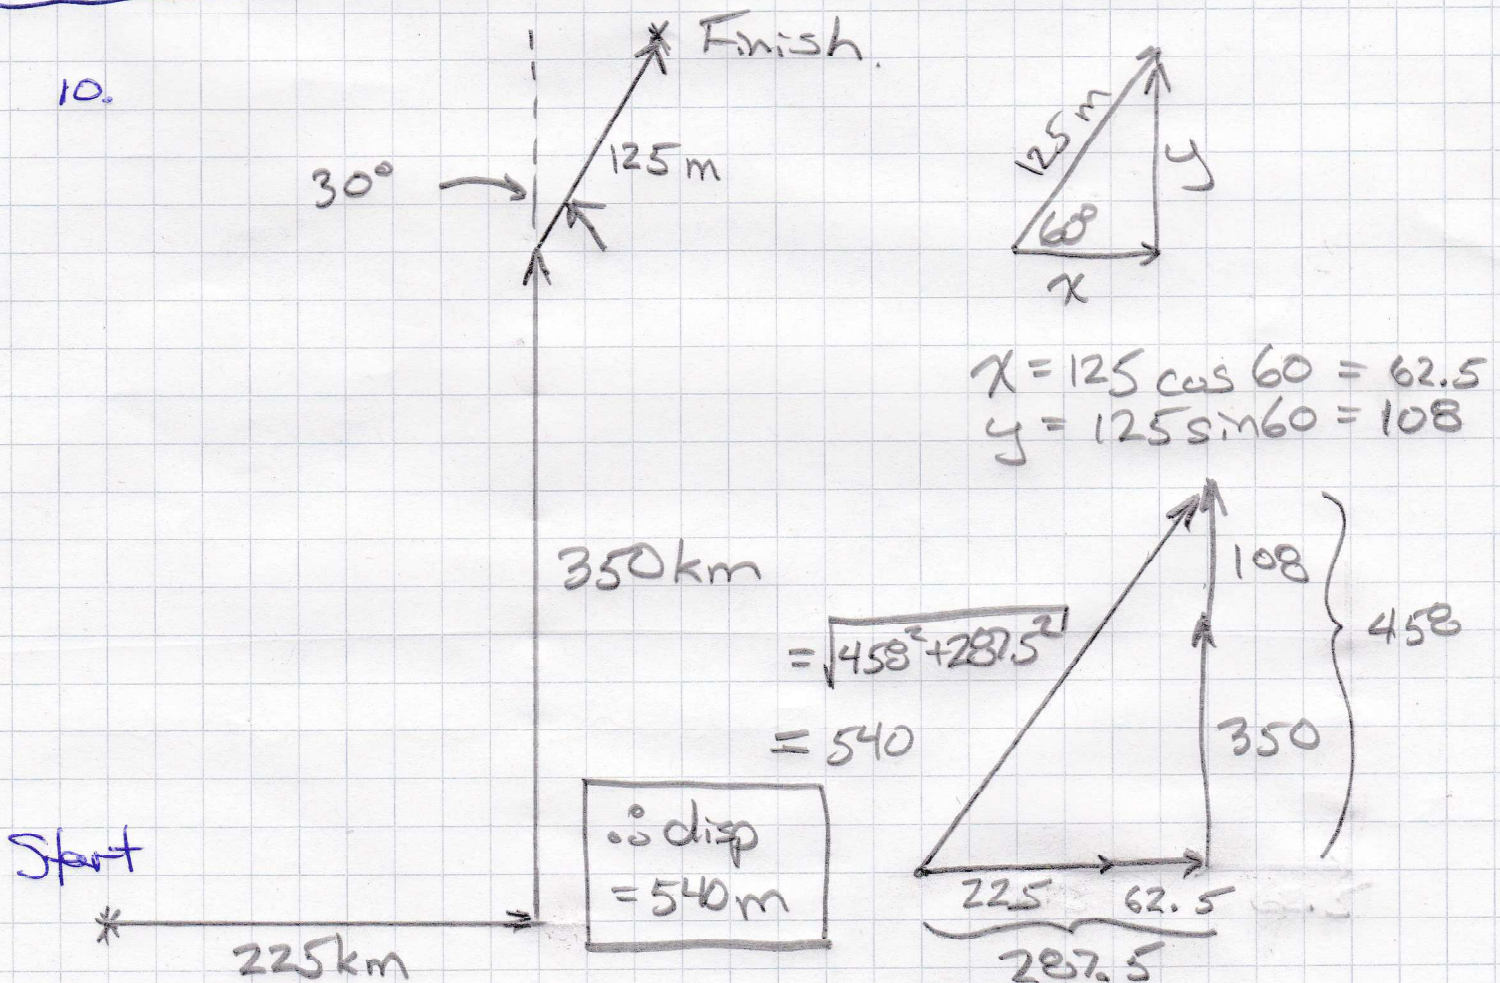 10.
Finish.
30°
125 m
350 km
Start
225 km
125 m
y
60°
x
x = 125 cos 60 = 62.5
y = 125 sin 60 = 108
108
458
350
= √458² + 287.5²
= 540
225 62.5
287.5
∴ disp
= 540 m